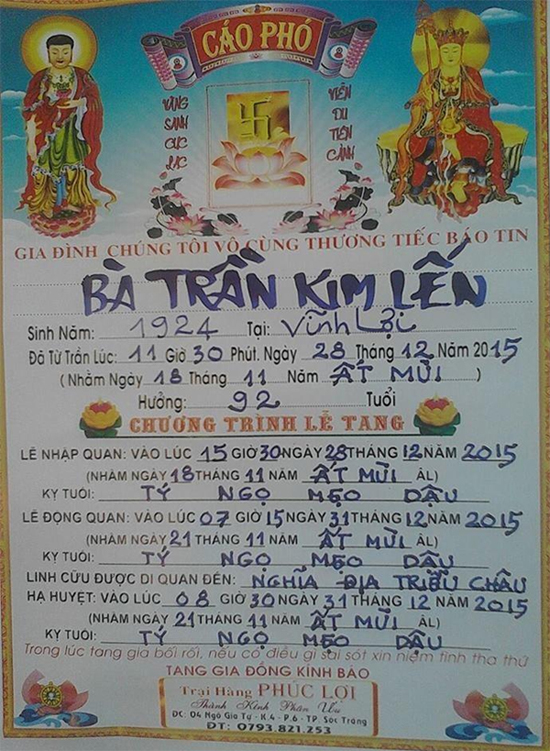 CÁO PHÓ
VÃNG SANH CỰC LẠC
VIỄN DU TIÊN CẢNH
GIA ĐÌNH CHÚNG TÔI VÔ CÙNG THƯƠNG TIẾC BÁO TIN
BÀ TRẦN KIM LẾN
Sinh Năm: 1924 Tại: Vĩnh Lợi
Đã Từ Trần Lúc: 11 Giờ 30 Phút. Ngày 28 Tháng 12 Năm 2015
(Nhằm Ngày 18 Tháng 11 Năm ẤT MÙI )
Hưởng: 92 Tuổi
CHƯƠNG TRÌNH LỄ TANG
LỄ NHẬP QUAN: VÀO LÚC 15 GIỜ 30 NGÀY 28 THÁNG 12 NĂM 2015
(NHẰM NGÀY 18 THÁNG 11 NĂM ẤT MÙI ÂL)
KỴ TUỔI: TÝ NGỌ MẸO DẬU
LỄ ĐỘNG QUAN: VÀO LÚC 07 GIỜ 15 NGÀY 31 THÁNG 12 NĂM 2015
(NHẰM NGÀY 21 THÁNG 11 NĂM ẤT MÙI ÂL)
KỴ TUỔI: TÝ NGỌ MẸO DẬU
LINH CỮU ĐƯỢC DI QUAN ĐẾN: NGHĨA ĐỊA TRIỀU CHÂU
HẠ HUYỆT: VÀO LÚC 08 GIỜ 30 NGÀY 31 THÁNG 12 NĂM 2015
(NHẰM NGÀY 21 THÁNG 11 NĂM ẤT MÙI ÂL)
KỴ TUỔI: TÝ NGỌ MẸO DẬU
Trong lúc tang gia bối rối, nếu có điều gì sai sót xin niệm tình tha thứ
TANG GIA ĐỒNG KÍNH BÁO
Trại Hàng PHÚC LỢI
Thành Kính Phân Ưu
ĐC: 04 Ngô Gia Tự - K.4 - P.6 - TP. Sóc Trăng
ĐT: 0793.821.253